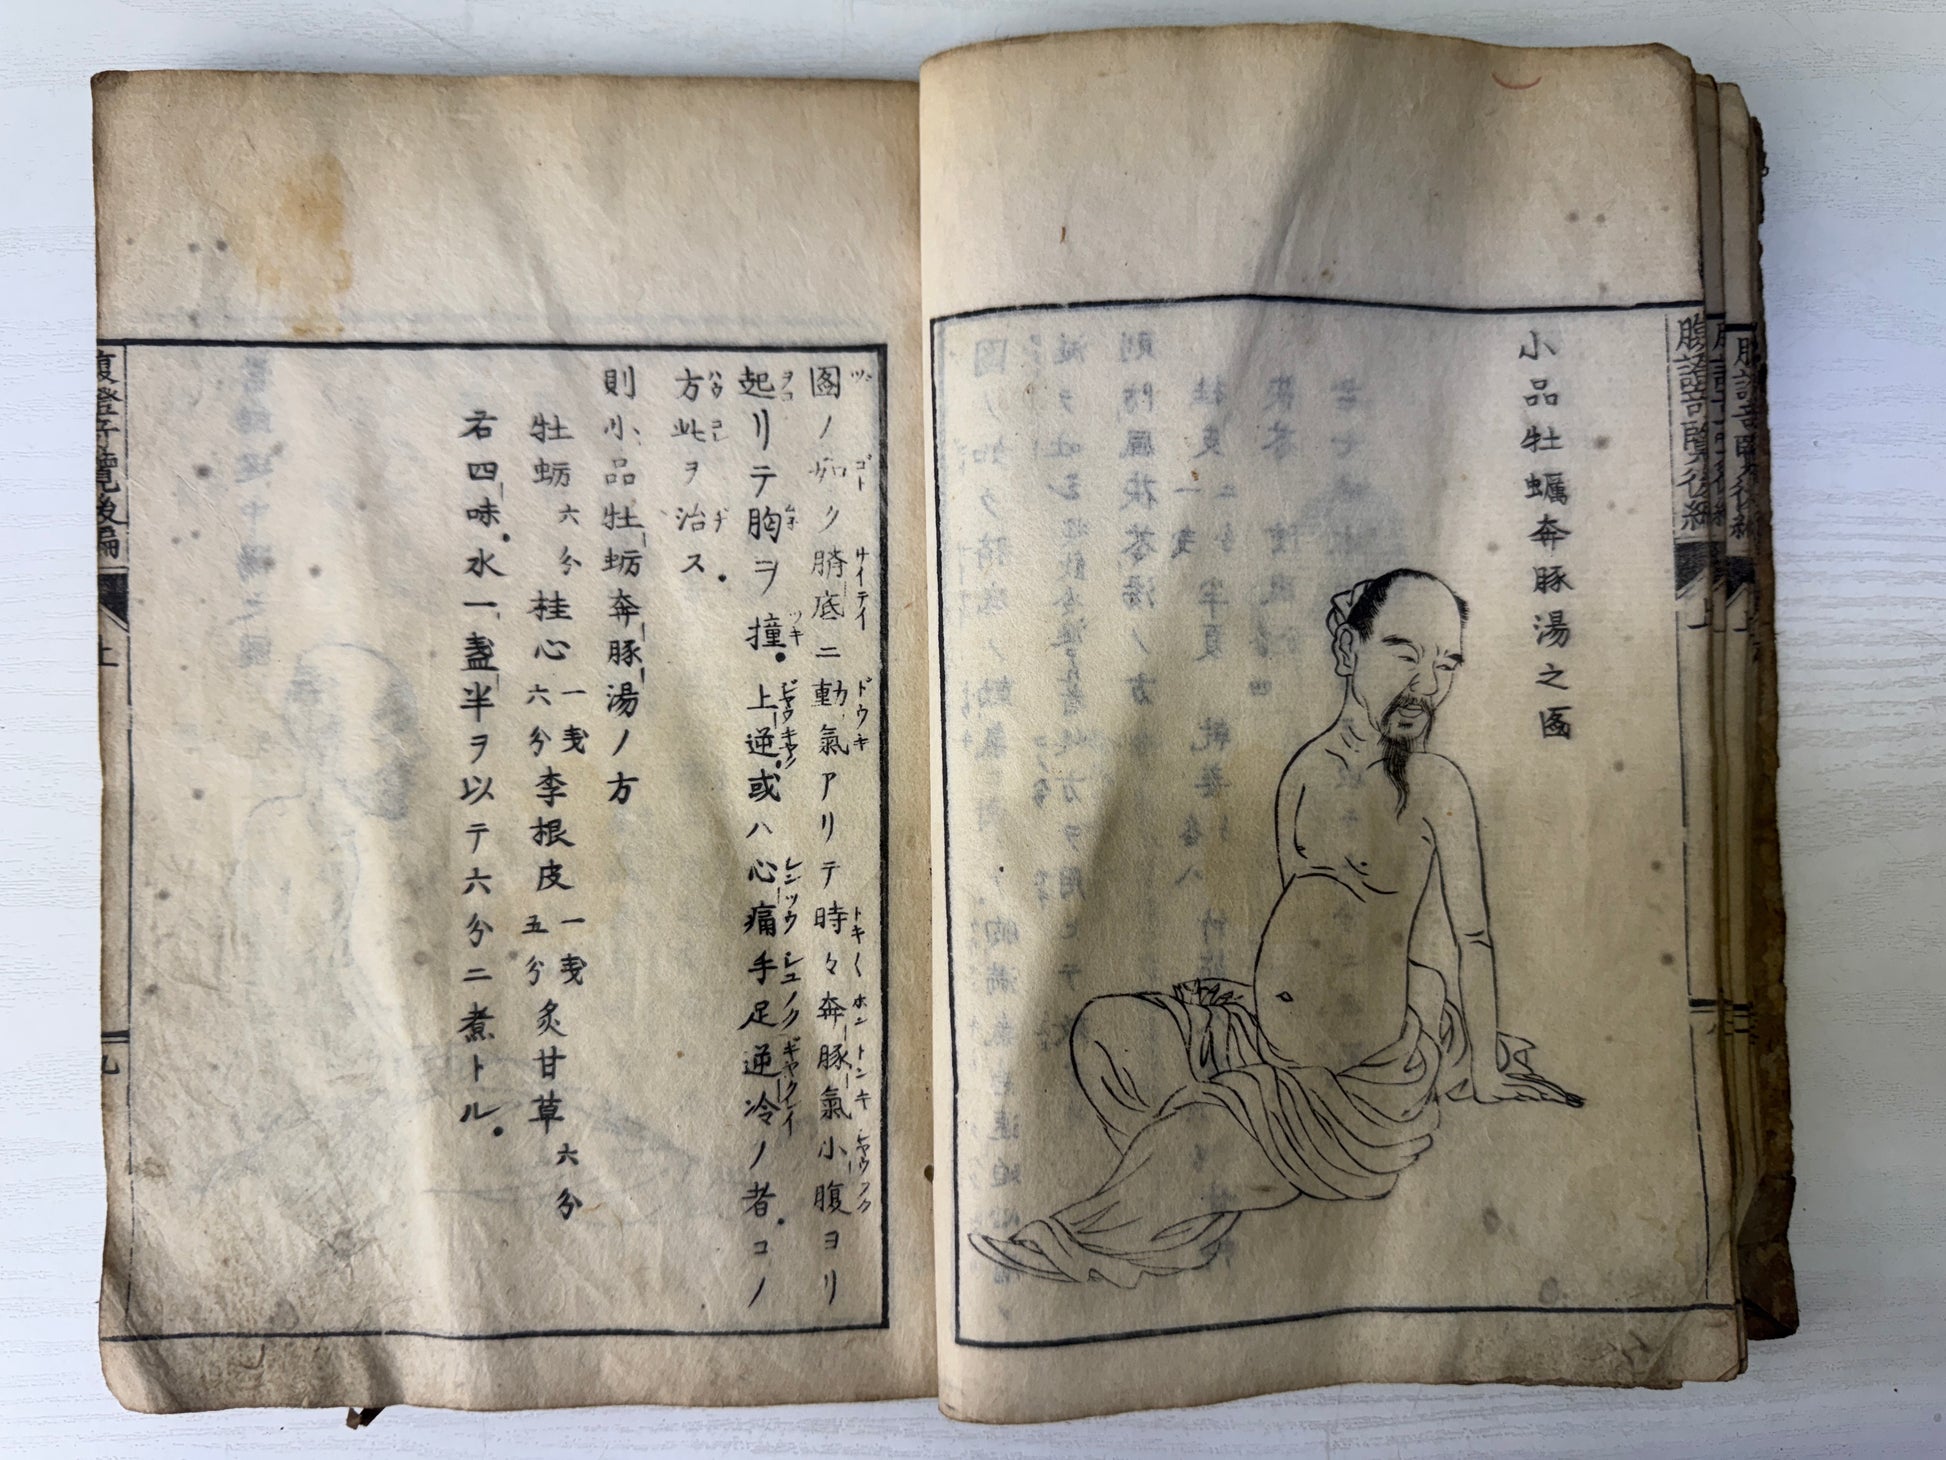 小品牡蠣奔豚湯之圖
圖ノ如ク臍底ニ動氣アリテ時々奔豚氣小腹ヨリ
起リテ胸ヲ撞。上逆。或ハ心痛手足逆冷ノ者。コノ
方此ヲ治ス。
則小品牡蛎奔豚湯ノ方
牡蛎六分 桂心一戔六分 李根皮一戔五分 炙甘草六分
右四味。水一盞半ヲ以テ六分ニ煮トル。
腹證奇覽後編
上
九